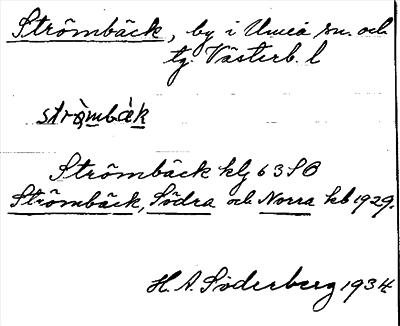 Strömbäck, by i Umeå sn. och
tg. Västerb. l
Strömbäck klg 63 SO
Strömbäck, Södra och Norra kb 1929.
H. A. Söderberg 1934